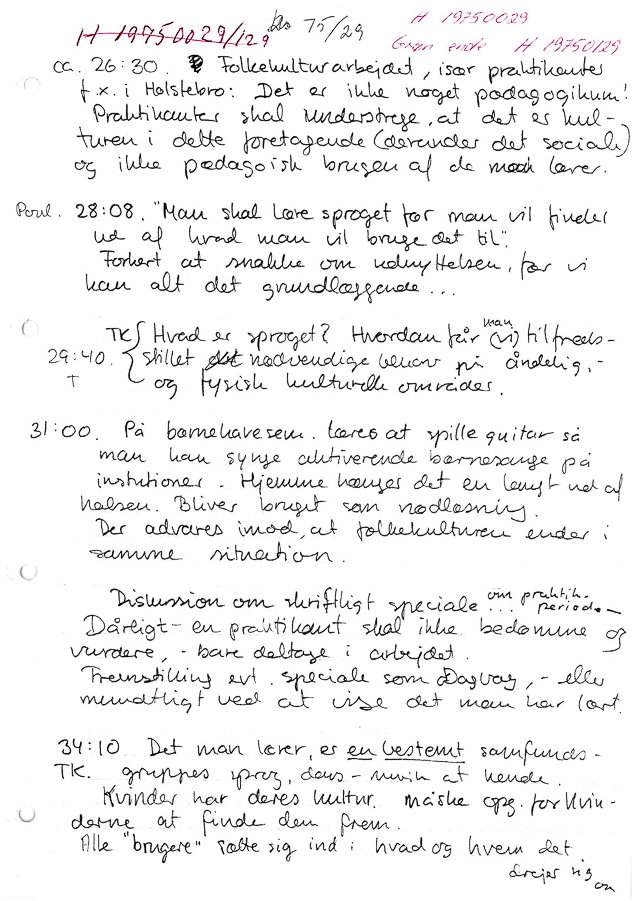 H 19750029/129 75/29 H 19750029
Grøn ende H 19750129
ca. 26:30. Folkekulturarbejdet, især praktikanter
f.x. i Holstebro: Det er ikke noget pædagogikum!
Praktikanter skal understrege, at det er kul-
turen i dette foretagende (derunder det sociale)
og ikke pædagoisk brugen af de man lærer.
Poul. 28:08. "Man skal lære sproget før man vil finder
ud af hvad man vil bruge det til".
Forkert at snakke om udnyttelsen, før vi
kan alt det grundlæggende...
TK Hvad er sproget? Hvordan får man (vi) tilfreds-
29:40. stillet det nødvendige behov på åndelig, -
T og fysisk kulturelle områder.
31:00. På børnehavesem. læres at spille guitar så
man kan synge aktiverende børnesange på
instutioner. Hjemme hænger det en langt ud af
halsen. Bliver brugt som nødløsning.
Der advares imod, at folkekulturen ender i
samme situation.
Diskussion om skriftligt speciale ... om praktik-
periode -
Dårligt - en praktikant skal ikke bedømme og
vurdere, - bare deltage i arbejdet.
Fremstilling evt. speciale som Dagbog, - eller
mundtligt ved at vise det man har lært.
34:10 Det man lærer, er en bestemt samfunds-
TK. gruppes sprog, dans - musik at kende.
Kvinder har deres kultur. måske opg. for kvin-
derne at finde dem frem.
Alle "brugere" sætte sig ind i hvad og hvem det
drejer sig
om